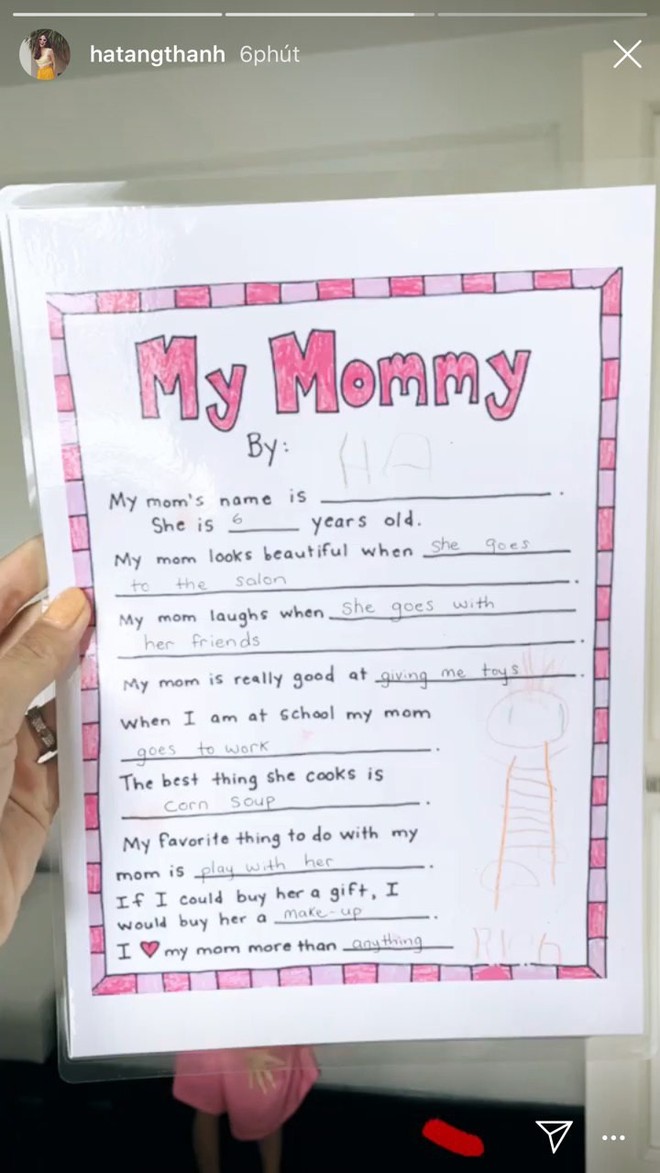 hatangthanh 6phút
My Mommy
By: HA
My mom's name is ____________.
She is 6 years old.
My mom looks beautiful when she goes
to the salon.
My mom laughs when she goes with
her friends.
My mom is really good at giving me toys.
When I am at school my mom
goes to work.
The best thing she cooks is
corn soup.
My favorite thing to do with my
mom is play with her.
If I could buy her a gift, I
would buy her a make-up.
I ❤ my mom more than anything